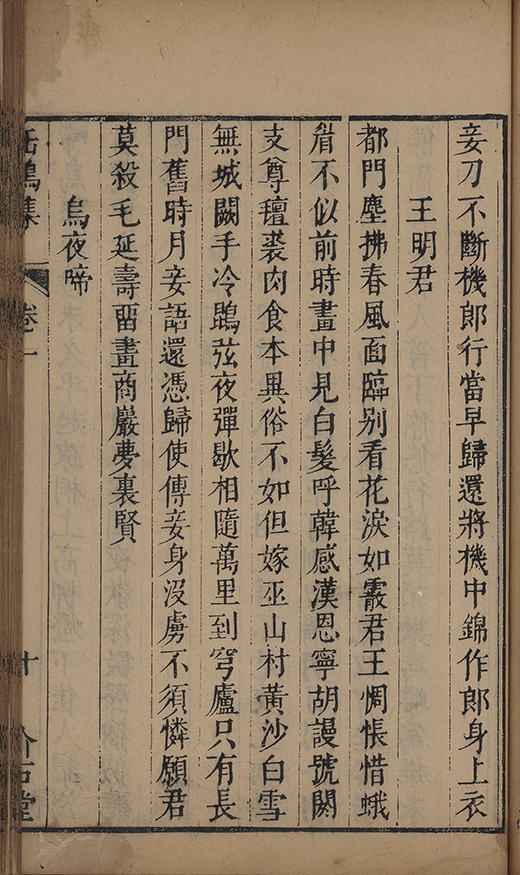 妾刀不斷機郎行當早歸還將機中錦作郎身上衣
王明君
都門塵拂春風面臨别看花淚如霰君王惆悵惜蛾
眉不似前時畫中見白髮呼韓感漢恩寧胡謾號閼
支尊氊裘肉食本異俗不如但嫁巫山村黃沙白雪
無城闕手冷鵾弦夜彈歇相隨萬里到穹廬只有長
門舊時月妾語還憑歸使傳妾身沒虜不須憐願君
莫殺毛延壽畱畫商巖夢裏賢
烏夜啼
缶鳴集
卷一
十
介石堂